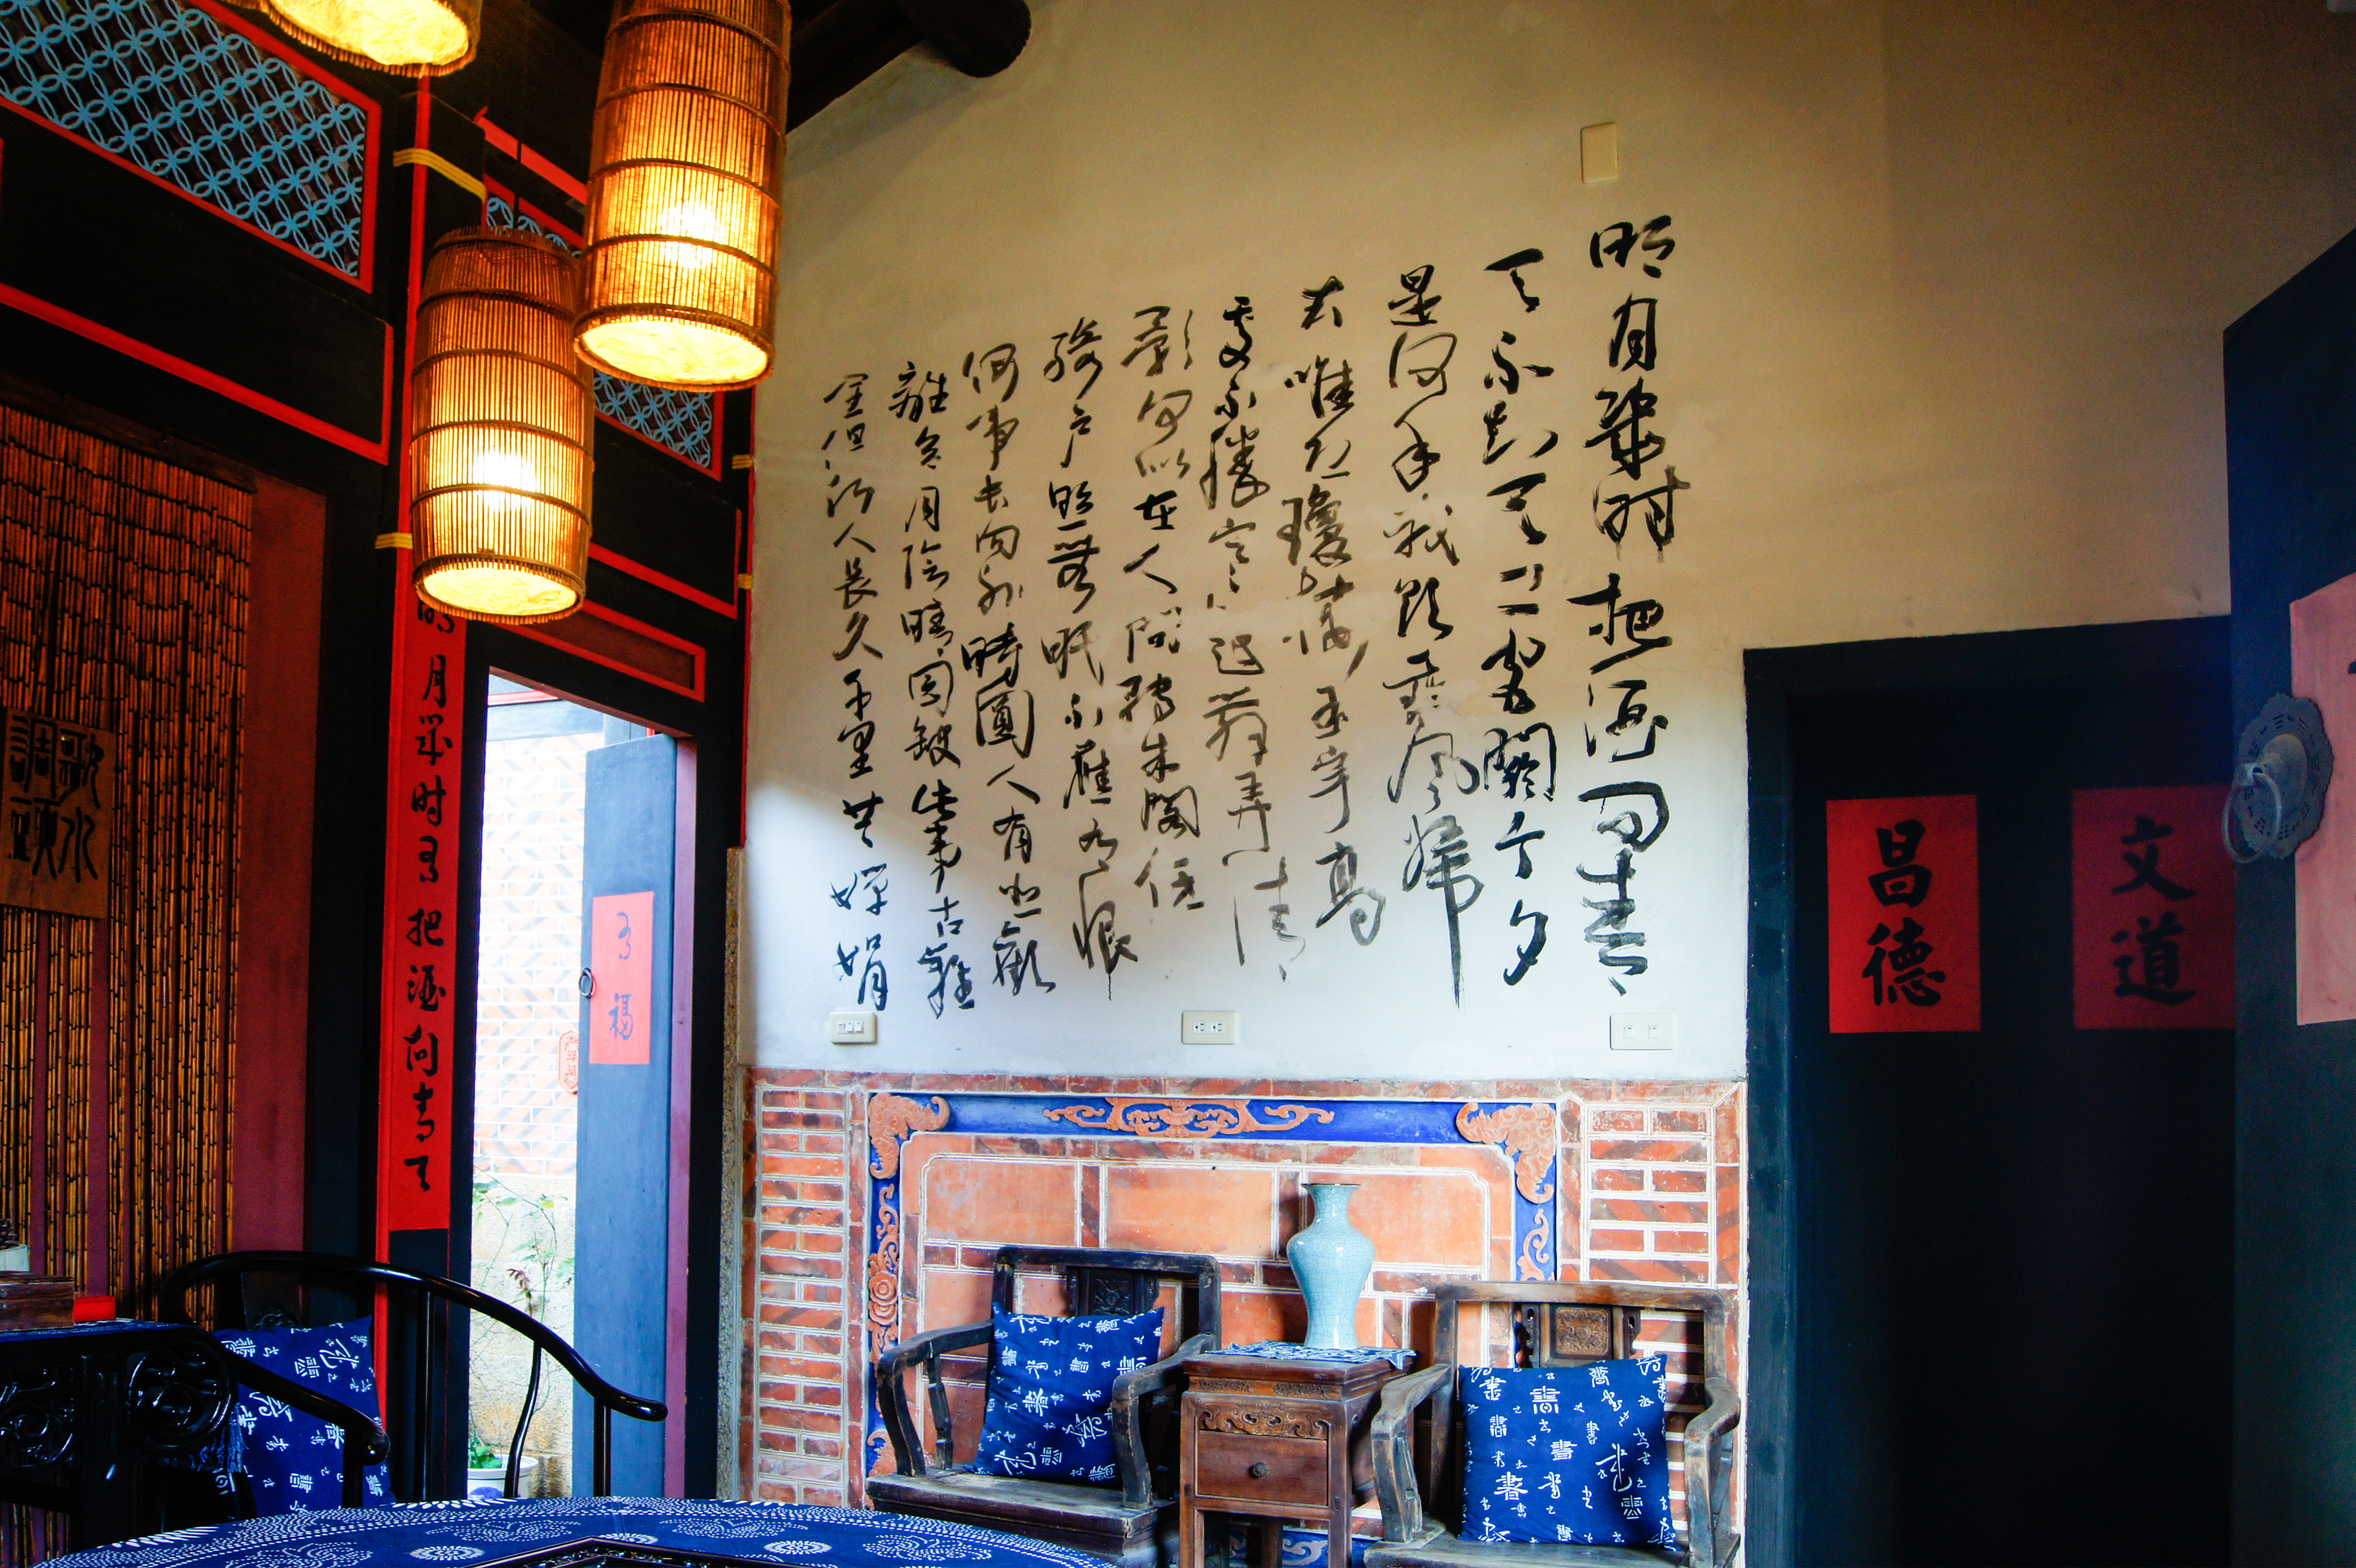 明月幾时把酒問青
天不知天上宮闕今夕
是何年我欲乘風歸
去唯恐瓊樓玉宇高
處不勝寒起舞弄清
影何似在人間轉朱閣低
綺戶照無眠不應有恨
何事長向別時圓人有悲歡
離合月陰晴圓缺此事古難
全但祈人長久千里共嬋娟
文道
昌德
明月幾时有把酒問青天
歌水
調頭